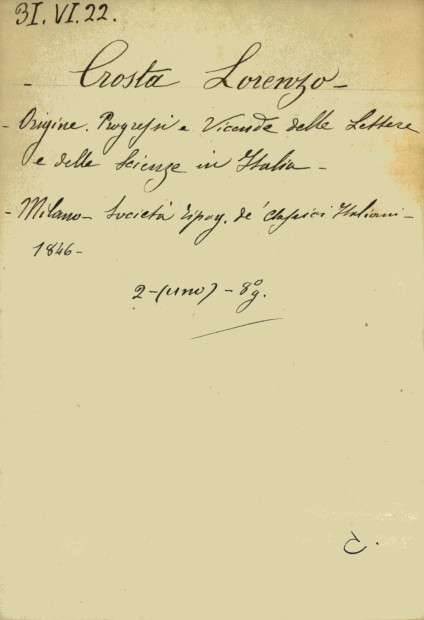 3I.VI.22.
- Crosta Lorenzo -
- Origine. Progressi e Vicende delle Lettere
e delle Scienze in Italia -
- Milano - Società Tipog. de' Classici Italiani -
1846 -
2 - (uno) - 8º g.
C.